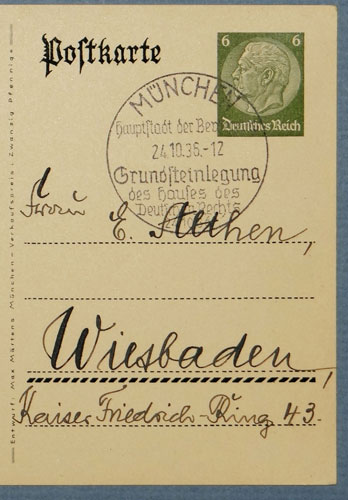 Postkarte
6 6
Deutsches Reich
MÜNCHEN
Hauptstadt der Bewegung
24.10.36.-12
Grundsteinlegung
des Hauses des
Deutschen Rechts
Frau
E. Aethen,
Wiesbaden,
Kaiser Friedrich-Ring 43.
Entwurf: Max Märtens, München – Verkaufspreis: Zwanzig Pfennig